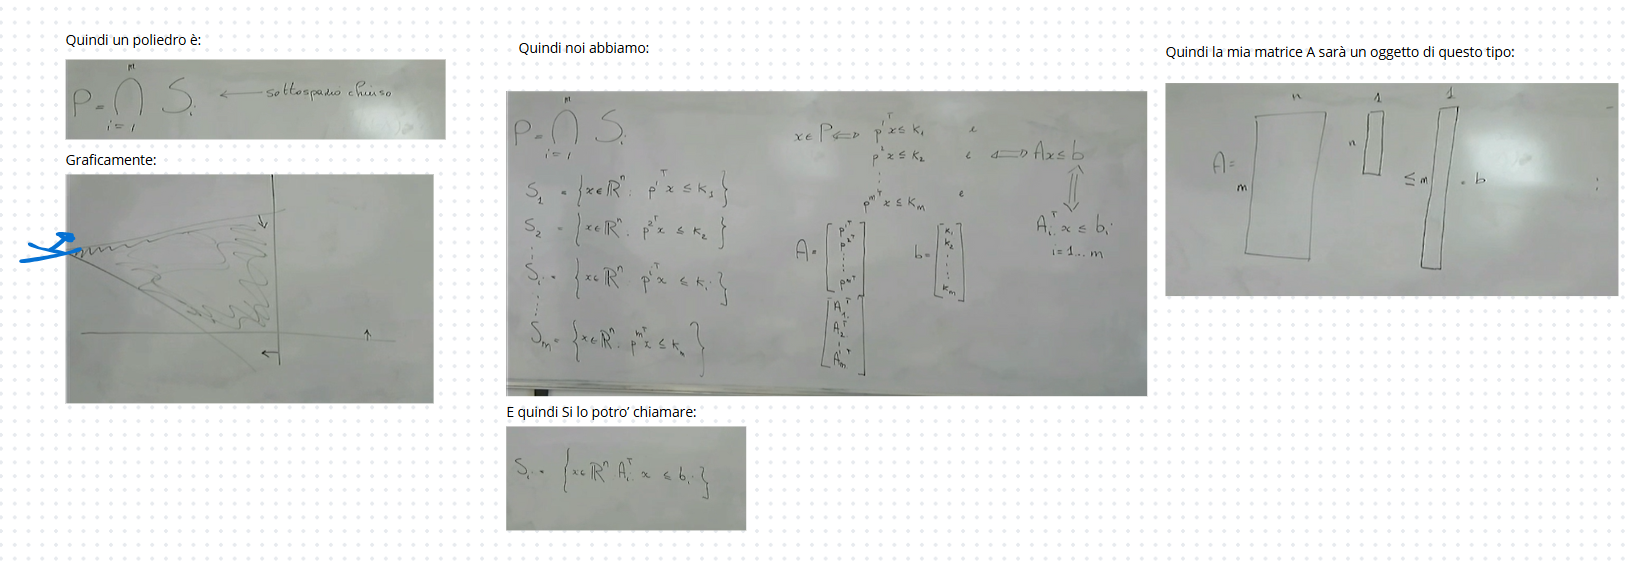 Quindi un poliedro è:
m
P = ⋂ Sᵢ ← sottospazio chiuso
i = 1
Graficamente:
Quindi noi abbiamo:
m
P = ⋂ Sᵢ
i = 1
S₁ = {x∈ℝⁿ: p¹ᵀx ≤ k₁}
S₂ = {x∈ℝⁿ: p²ᵀx ≤ k₂}
Sᵢ = {x∈ℝⁿ p^{iᵀ}x ≤ kᵢ}
Sₘ = {x∈ℝⁿ: p^{mᵀ}x ≤ kₘ}
x∈P ⟺ p¹ᵀx ≤ k₁ e
p²ᵀx ≤ k₂ e ⟺ Ax ≤ b
⋮
p^{mᵀ}x ≤ kₘ e
⇕
Aᵢᵀx ≤ bᵢ
i = 1...m
A = [p¹ᵀ
p²ᵀ
⋮
p^{mᵀ}]
b = [k₁
k₂
⋮
kₘ]
[A₁ᵀ
A₂ᵀ
⋮
Aₘᵀ]
E quindi Si lo potro’ chiamare:
Sᵢ = {x∈ℝⁿ: Aᵢᵀx ≤ bᵢ}
Quindi la mia matrice A sarà un oggetto di questo tipo:
n 1 1
A = m n ≤ m = b